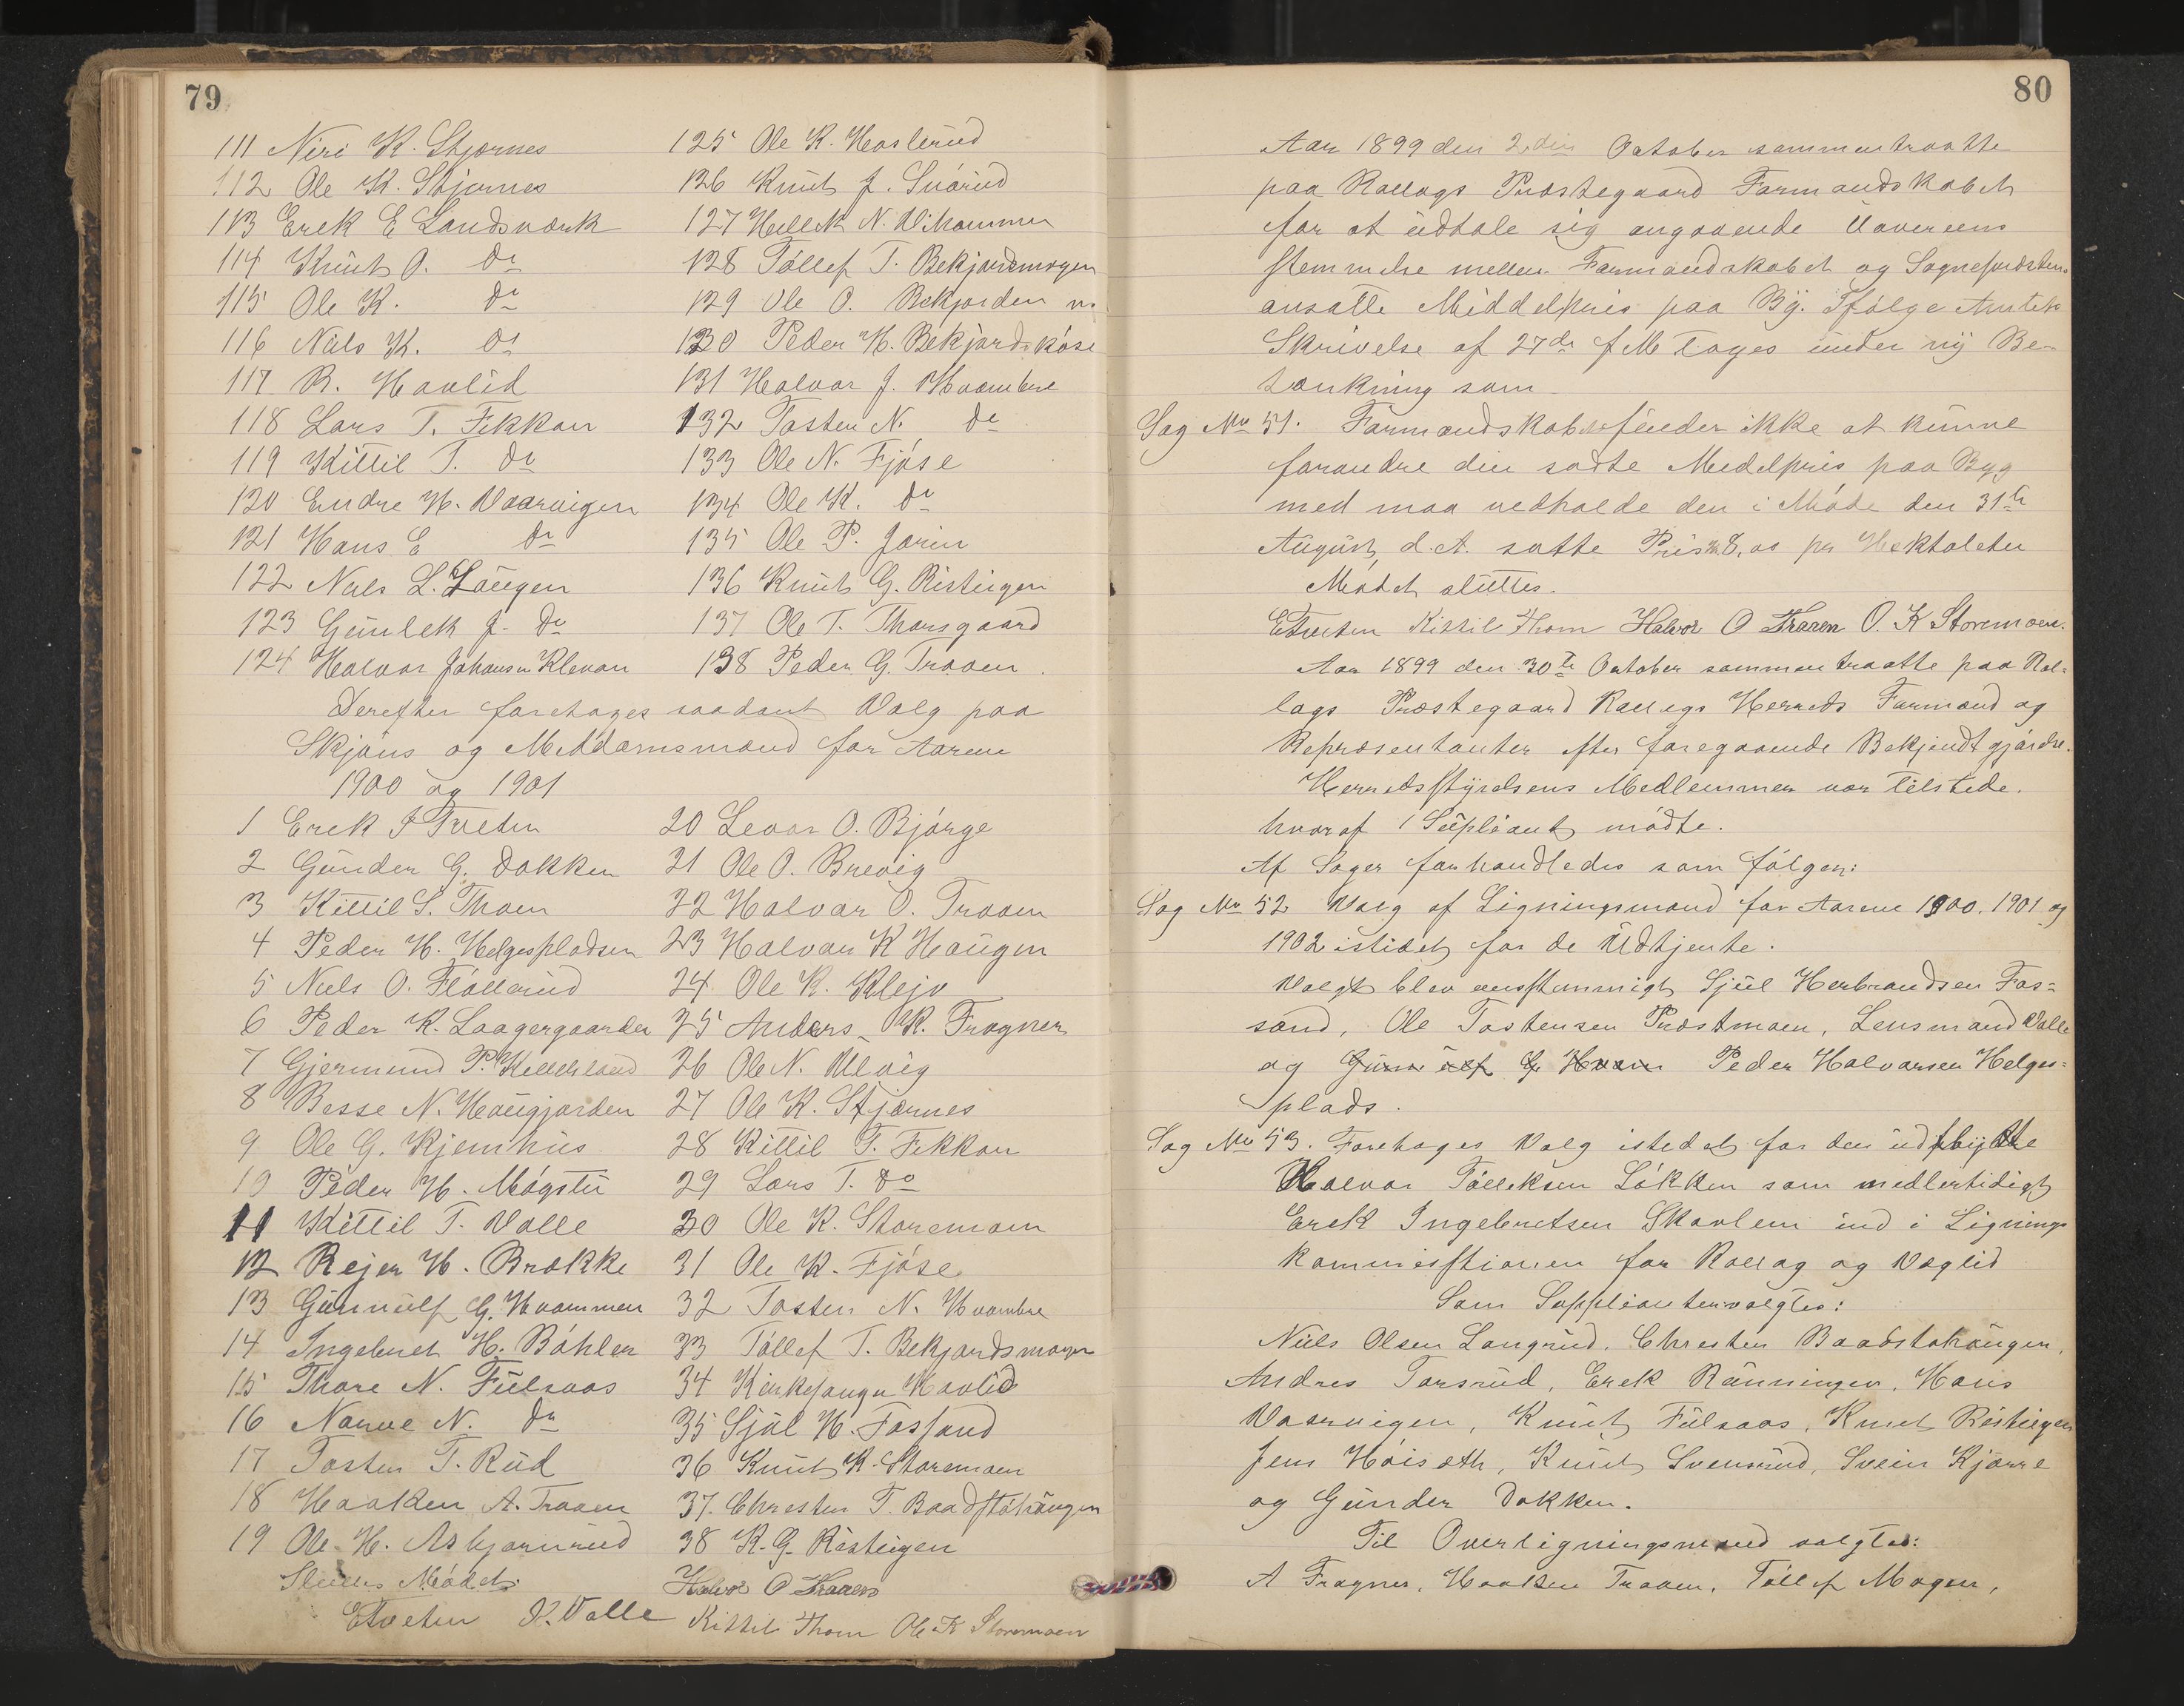 79
111 Niri K. Stjernes
112 Ole K. Stjernes
113 Erek E Landsværk
114 Knut O. Do
115 Ole K. Do
116 Nils K. Do
117 R. Havlid
118 Lars T. Fekkan
119 Kittil T. Do
120 Endre H. Vaarvigen
121 Hans E Do
122 Nils L. Laugen
123 Gunlek J. Do
124 Halvor Johansen Klevan
125 Ole K. Haslerud
126 Knut J.
127 Hellek N. Vihammer
128 Tøllef T. Bekjordsmogen
129 Ole O. Bekjorden
130 Peder H. Bekjords
131 Halvor J. Hvambre
132 Tosten N. Do
133 Ole N. Fjøse
134 Ole K. Do
135 Ole P. Jorin
136 Knut G. Risteigen
137 Ole T. Thorsgaard
138 Peder G. Traaen
Derefter foretages saadant Valg paa
Skjøns og Meddomsmænd for Aarene
1900 og 1901
1 Erek I Tveten
2 Gunder G. Dokken
3 Kittil S. Thoen
4 Peder H. Helgespladsen
5 Nils O. Fløllerud
6 Peder K. Laagergaarden
7 Gjermund P.
8 Besse N. Haugjorden
9 Ole G. Kjemhus
10 Peder H. Møgstu
11 Kittil T. Valle
12 Rejer H. Brekke
13 Gunnulf G. Hvammen
14 Ingebret H. Bøhler
15 Thore N. Fulsaas
16 Narve N. Do
17 Tosten T. Rud
18 Haaken A. Traaen
19 Ole H. Asbjørnrud
20 Levor O. Bjørge
21 Ole O. Brevig
22 Halvor O. Traaen
23 Halvor K Haugen
24 Ole K. Klejv
25 Anders K. Fragner
26 Ole N. Ulvig
27 Ole K. Stjernes
28 Kittil T. Fekkan
29 Lars T. Do
30 Ole K. Storemoen
31 Ole K. Fjøse
32 Tosten N. Hvambre
33 Tøllef T. Bekjordsmogen
34 Kirkesanger Havlid
35 Sjul H. Fossand
36 Knut K. Storemoen
37. Chresten T. Baadstøhaugen
38 K. G. Risteigen
Sluttes Mødet.
ETveten K. Valle Halvor O Traaen
Kittil Thoen Ole K Storemoen
80
Aar 1899 den 2den October sammentraatte
paa Rollags Præstegaard Formandskabet
for at udtale sig angaaende Uovereens
stemmelse mellem Formandskabet og Sognepræstens
ansatte Middelpris paa Byg. Ifølge Amtets
Skrivelse af 27de f M toges under ny Be-
tænkning som
Sag No 51. Formandskabet finder ikke at kunne
forandre den sadte Medelpris paa Byg
med maa vedholde den i Møde den 31te
August d. A. satte Pris 8,00 pr Hektoleter
Mødet sluttes.
ETveten Kittil Thoen Halvor O Traaen O. K Storemoen.
Aar 1899 den 30te October sammentraatte paa Rol-
lags Præstegaard Rollags Herreds Formænd og
Repræsentanter efter foregaaende Bekjendtgjørelse.
Herredsstyrelsens Medlemmer var tilstede.
hvoraf 1 Supleant mødte.
Af Sager forhandledes som følger:
Sag No 52 Valg af Ligningsmænd for Aarene 1900. 1901 og
1902 istedet for de Udtjente.
Valgt blev enstemmigt Sjul Herbrandsen Fos-
sand, Ole Tostensen Præstmoen, Lensmand Valle
og Gunulf G. Hvam Peder Halvorsen Helges-
plads.
Sag No 53. Foretages Valg istedet for den udflyttte
Halvor Tølleksen Løkken som medlertidigt
Erek Ingebretsen Skavlem ind i Lignings
kommisstionen for Rollag og Veglid
Som Suppleanter valgtes:
Nils Olsen Langrud, Chresten Baadstøhaugen,
Andres Torsrud, Erek Rønningen, Hans
Vaarvigen, Knut Fulsaas, Knut Risteigen
Jens Høisæth, Knut Svensrud, Svein Kjørre
og Gunder Dokken.
Til Overligningsmænd valgtes:
A Fragner, Haaken Traaen, Tøllef Mogen,